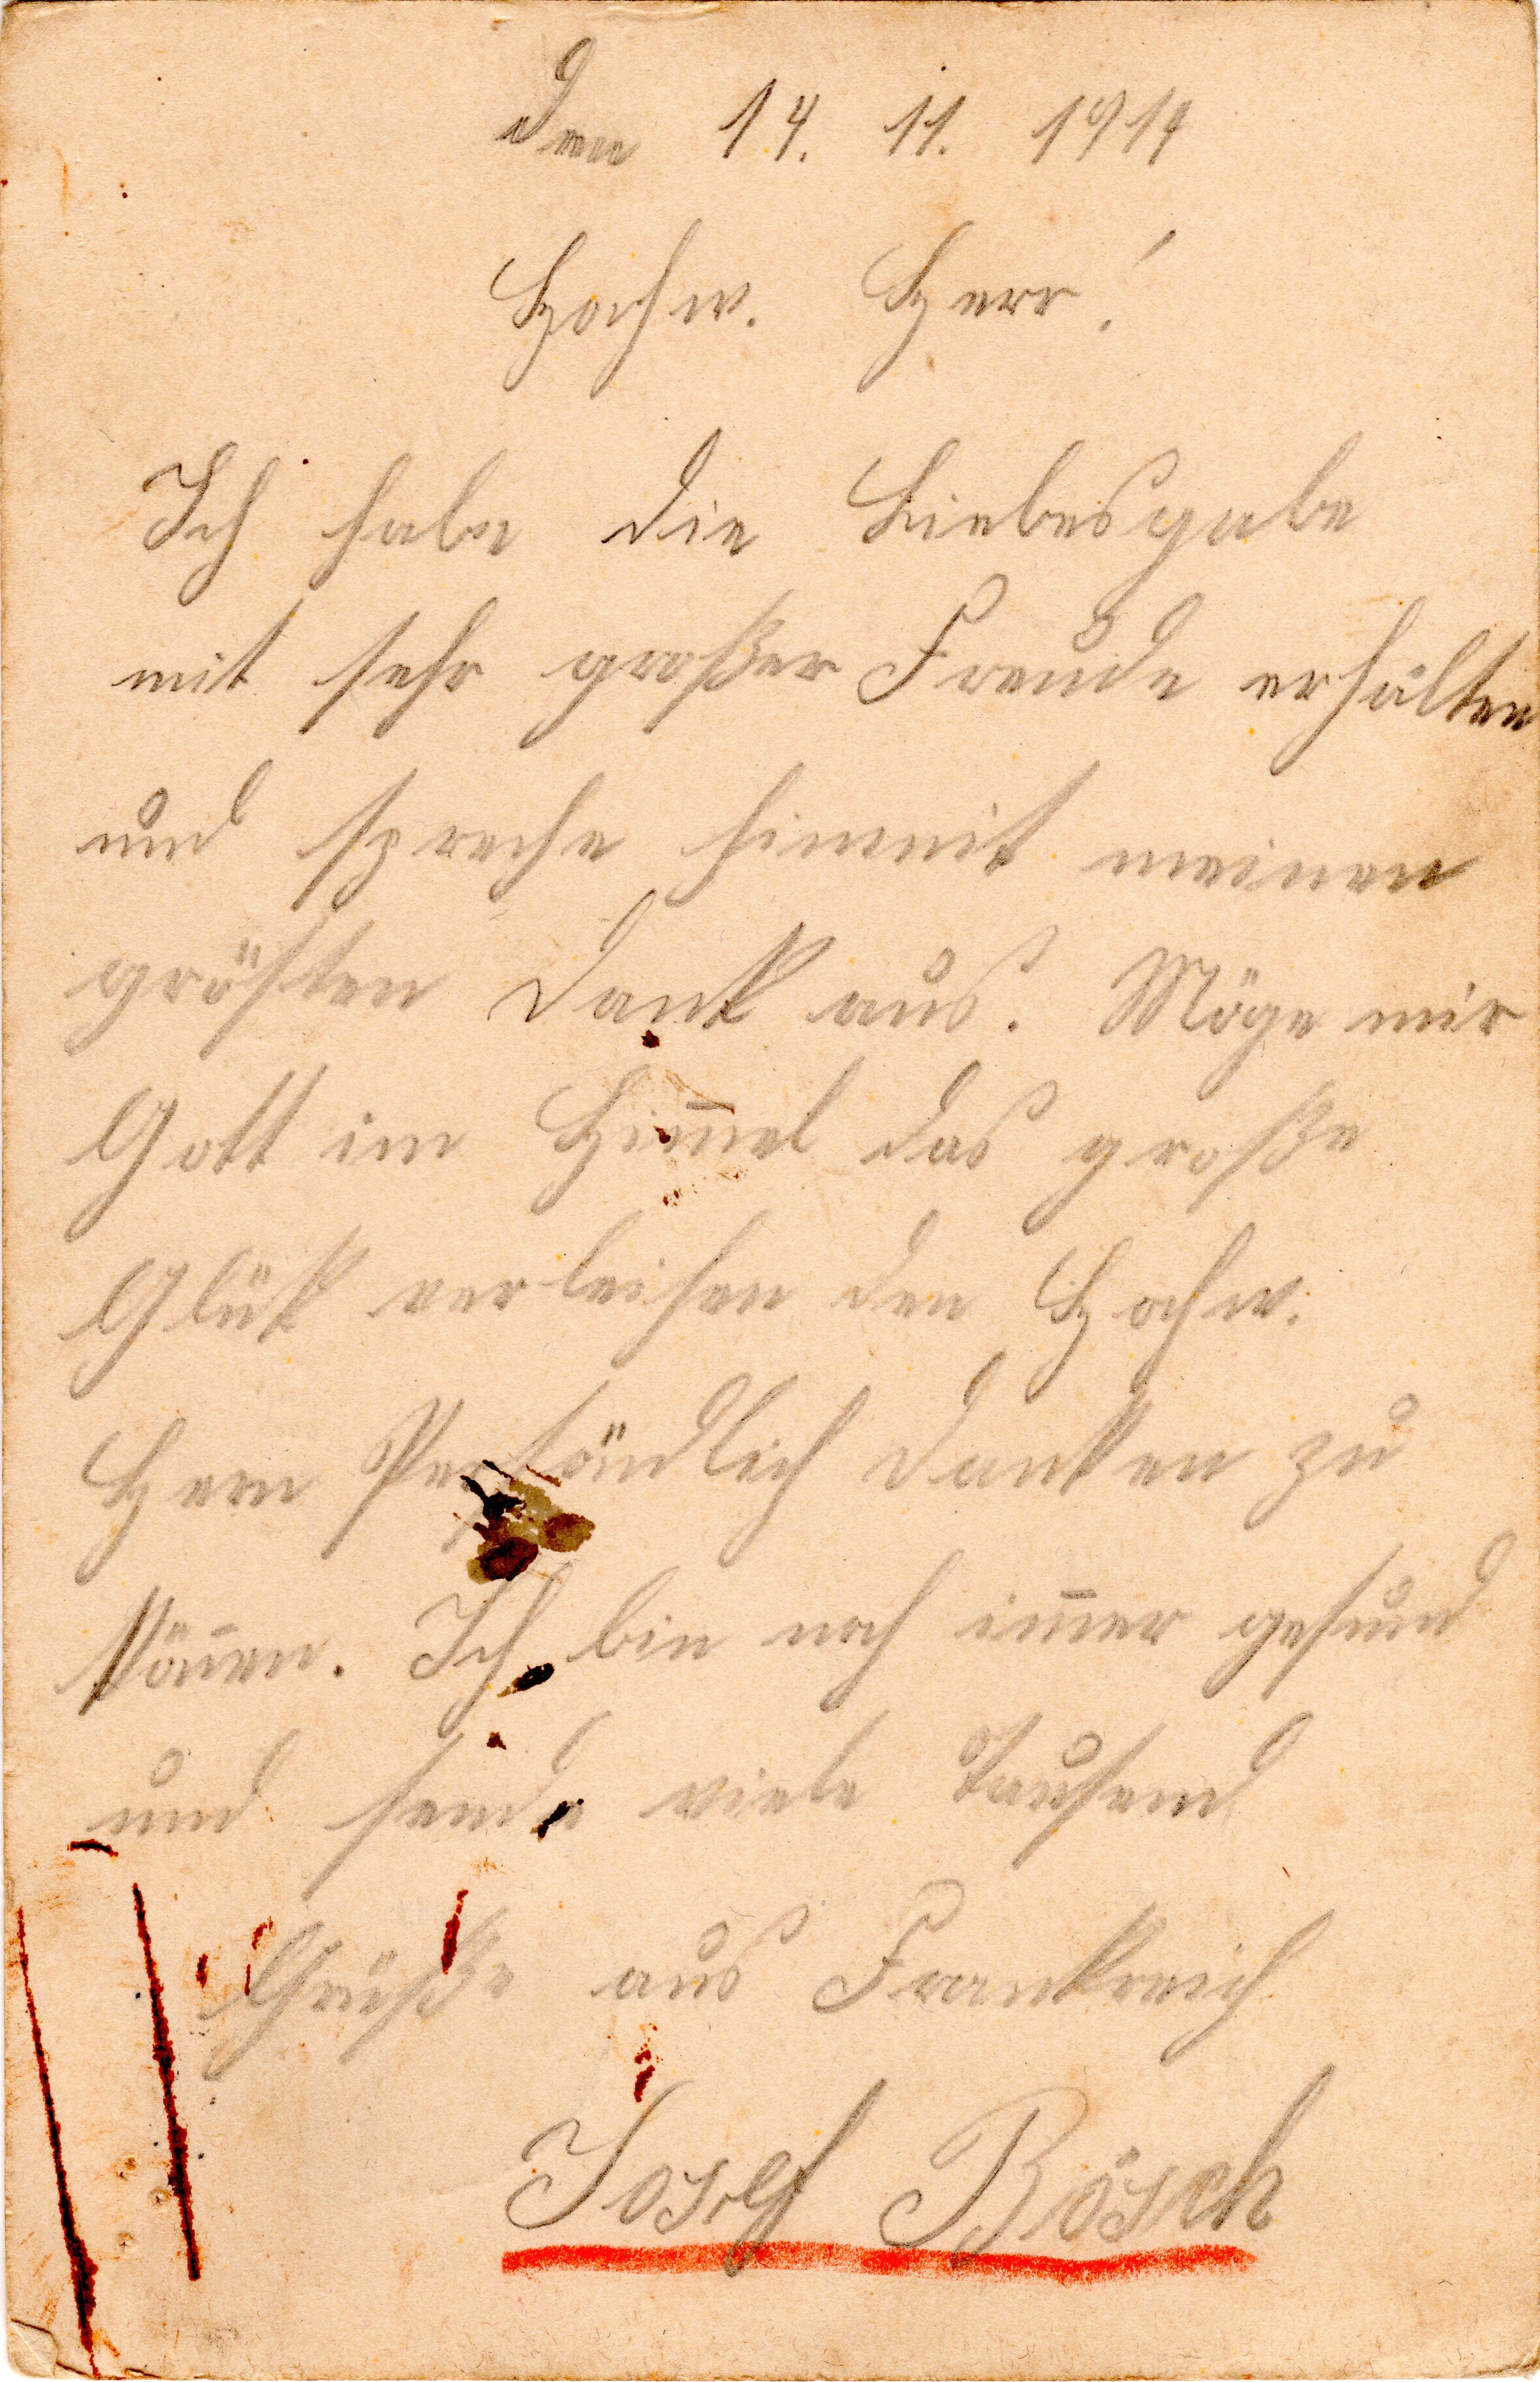 den 14. 11. 1914
Hochw. Herr!
Ich habe die Liebesgabe
mit sehr großer Freude erhalten
und spreche himmit meinen
grösten Dank aus. Möge mir
Gott im Him̅el das große
Glük verleihen den Hochw.
Hern Persöndlich danken zu
kön̅en. Ich bin noch im̅er gesund
und sende viele Tausend
Grüße aus Frankreich
Josef Bösch